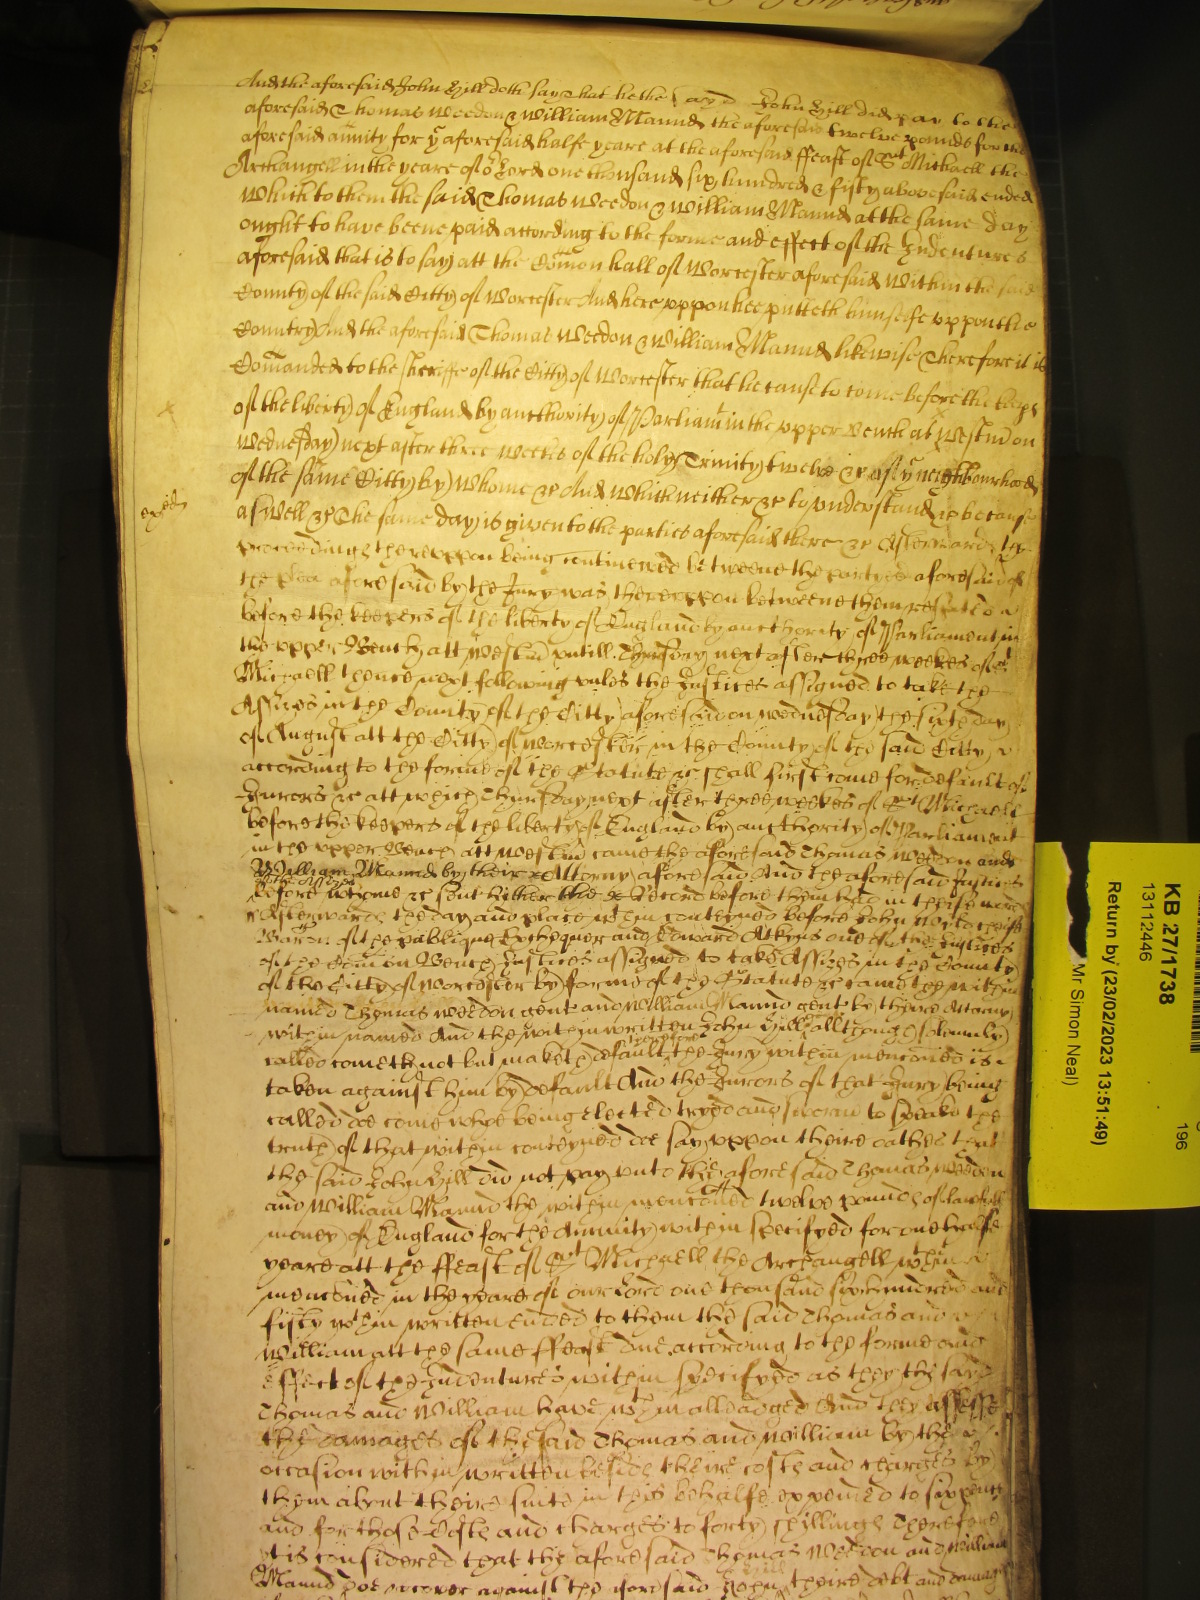 And the aforesaid John Hill doth say that he the said John Hill did pay to the
aforesaid Thomas Weedon & William Mannd the aforesaid twelve pounds for the
aforesaid anuity for ye aforesaid halfe yeare at the aforesaid ffeast of St Michaell the
Archangell in the yeare of or Lord one thousand six hundred & fifty abovesaid ended
which to them the said Thomas Weedon & William Mannd at the same day
ought to have beene paid according to the forme and effect of the Indentures
aforesaid that is to say att the Comon hall of Worcester aforesaid within the said
County of the said Citty of Worcester And hereuppon hee putteth himselfe uppon the
Country And the aforesaid Thomas Weedon & William Mannd likewise Therefore it is
Comanded to the sheriffe of the Citty of Worcester that he cause to come before the keeps
of the liberty of England by aucthority of Parliamt in the upper bench at Westm on
Wednesday next after three weekes of the holy Trinity twelve &c of ye neighbourhood
of the same Citty by whome &c And which neither &c to understand &c because
aswell &c The same day is given to the parties aforesaid there &c Afterwards the
proceedings thereuppon being continewed betweene the partyes aforesaid of
the plea aforesaid by the Jury was thereuppon betweene them respited
before the keepers of the liberty of England by aucthority of Parliament in
the upper Bench att Westm untill Thursday next after three weekes of St
Michaell thence next following unles the Justices assigned to take the
Assizes in the County of the Citty aforesaid on wednesday the sixth day
of August att the Citty of Worcester in the County of the said Citty
according to the forme of the Statute &c shall first come for default of
Jurors &c att which Thursday next after three weekes of St Michaell
before the keepers of the liberty of England by aucthority of Parliament
in the upper Bench att Westm came the aforesaid Thomas Weedon and
William Mannd by their Attorny aforesaid And the aforesaid Justices
before whome &c sent hither the Record before them had in theise words
Afterwards the day and place wthin conteyned before John Wylde cheife
Baron of the publique Exchequer and Edward Atkyns one of the Justices
of the Comon Bench Justices assigned to take Assizes in the County
of the Citty of Worcester by forme of the Statute &c came the within
named Thomas Weedon gent and William Mannd gent by theire Attorny
within named And the within written John Hill allthough solemnly
called cometh not but maketh default therefore the Jury within menconed is
taken against him by default And the Jurors of that Jury being
called doe come whoe being elected tryed and sworne to speake the
truth of that within conteyned doe say uppon theire oathes that
the said John Hill did not pay unto the aforesaid Thomas Weedon
and William Mannd the within menconed twelve pounds of lawfull
money of England for the Annuity within specifyed for one halfe
yeare att the ffeast of St Michaell the Archangell wthin
menconed in the yeare of our Lord one thousand six hundred and
fifty wthin written ended to them the said Thomas and
William att the same ffeast due according to the forme and
effect of the Indentures within specifyed as they the said
Thomas and William have wthin alleadged And they assesse
the damages of the said Thomas and William by the
occasion within written beside theire costs and charges by
them about theire suite in this behalfe expended to sixpence
and for those Costs and charges to forty shillings Therefore
it is considered that the aforesaid Thomas Weedon and William
Mannd doe recover against the aforesaid John Hill theire debt and damages
KB 27/1738
13112446
Return by (23/02/2023 13:51:49)
Mr Simon Neal)
196